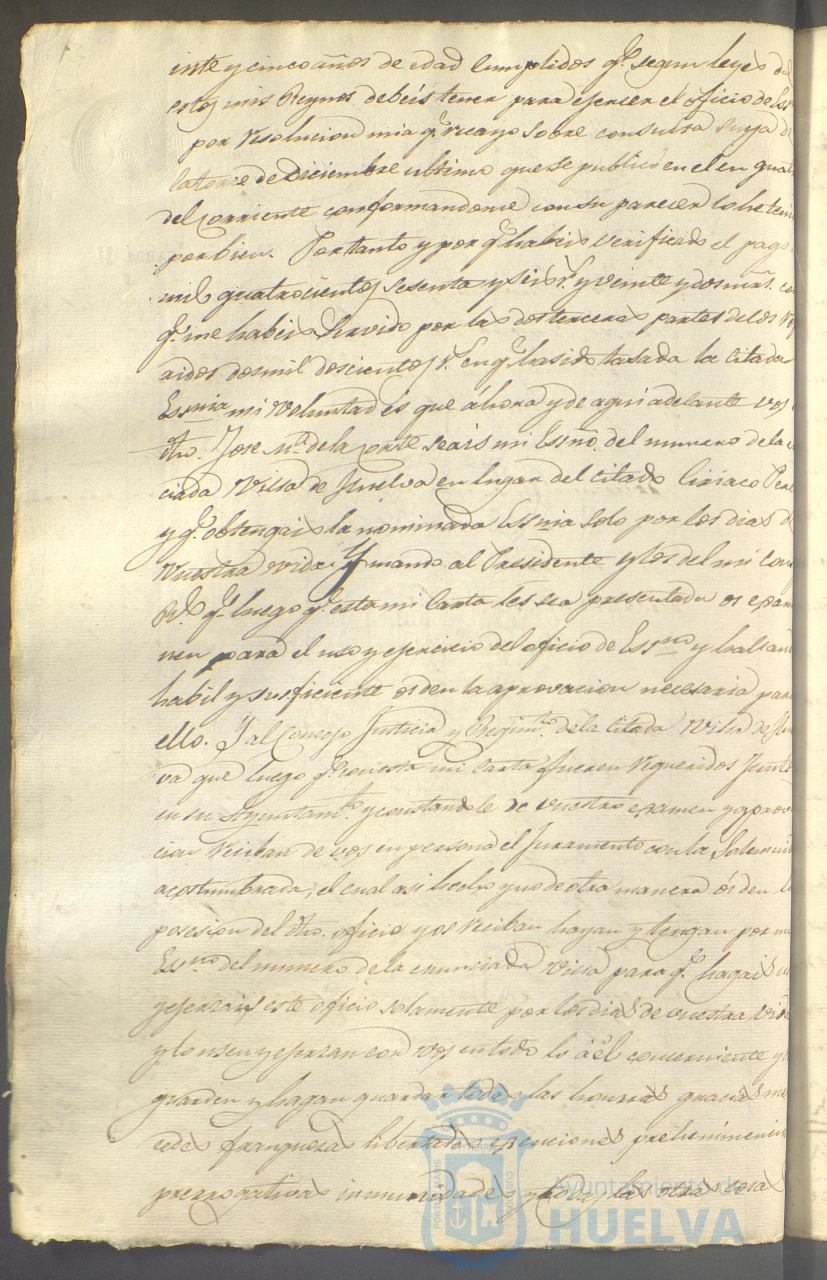 inte y cinco años de edad cumplidos qe. segun leyes de
estos mis Reynos debeis tener para ejercer el oficio de
por resolucion mia qe. recayo sobre consulta suya de
catorce de Diciembre ultimo que se publicó en el en quat
del corriente conformandome con su parecer lo he teni
por bien. Por tanto y por qe. habeis verificado el pago
mil quatrocientos sesenta y seis rs. y veinte y dos mrs. co
qe. me habeis servido por las dos terceras partes de los
dos mil doscientos rs. en qe. ha sido tasada la citada
Essnia mi voluntad es que ahora y de aqui adelante vos
dho. Jose Ma. de la Corte seais mi Essno. del numero de la
ciada Villa de Huelva en lugar del citado Ciriaco
y qe. obtengais la nominada Essnia solo por los dias de
vuestra vida: Y mando al Presidente y los del mi Con
Rl. qe. luego qe. esta mi carta les sea presentada os exam
nen para el uso y ejercicio del oficio de Essno y hallan
habil y suficiente os den la aprovacion necesaria para
ello. Y al Concejo Justicia y Regimto. de la citada Villa de Huel
va que luego qe. con esta mi carta fueren requeridos Juntos
en su Ayuntamto. y constandole de vuestro examen y aprova
cion reciban de vos en persona el Juramento con la Solemni
acostumbrada, el cual asi hecho y no de otra manera os den la
posesion del dho. oficio y os reciban hayan y tengan por mi
Essno del numero de la enunciada Villa para qe. hagais
y ejerzais este oficio solamente por los dias de vuestra vida
y lo usen y ejerzan con vos en todo lo á él concerniente y
guarden y hagan guardar todas las honrras gracias mer
cedes franquezas libertades esenciones preheminencias
prerrogativas inmunidades y todas las otras cosas
Ayuntamiento de
HUELVA